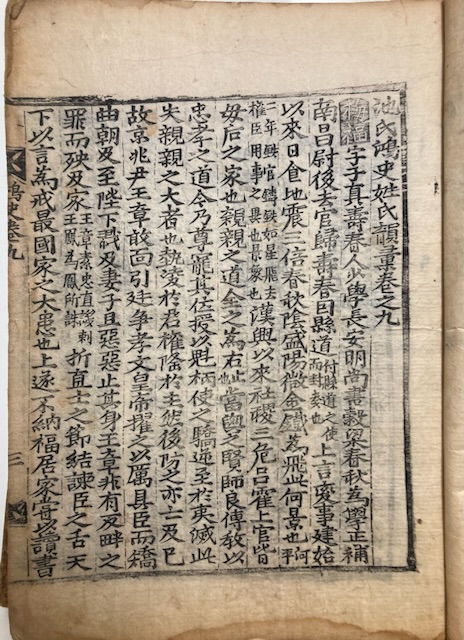 池氏鴻史姓氏韻彙卷之九
梅福字子真壽春人少學長安明尚書穀梁春秋爲學正補
南昌尉後去官歸壽春因縣道附縣道之使而封奏也上言變事建始
以來日食地震三倍春秋陰盛陽微金鐵爲飛此何景也河平
二年鐵官鑄鐵如星飛去權臣用事之異也景象也漢興以來社稷三危呂霍上官皆
母后之家也親親之道全之爲右當與之賢師良傅教以
忠孝之道今乃尊寵其任授以魁柄使之驕逆至於夷滅此
失親親之大者也勢凌於君權隆於主然後防之亦亡及已
故京兆尹王章敢面引廷爭孝文皇帝擢之以厲具臣而矯
曲朝及至陛下戮及妻子且惡惡止其身王章非有反畔之
罪而殃及家王章素忠直譏刺王鳳爲鳳所誅折直士之節結諫臣之舌天
下以言爲戒最國家之大患也上遂不納福居家常以讀書
鴻史卷九 三